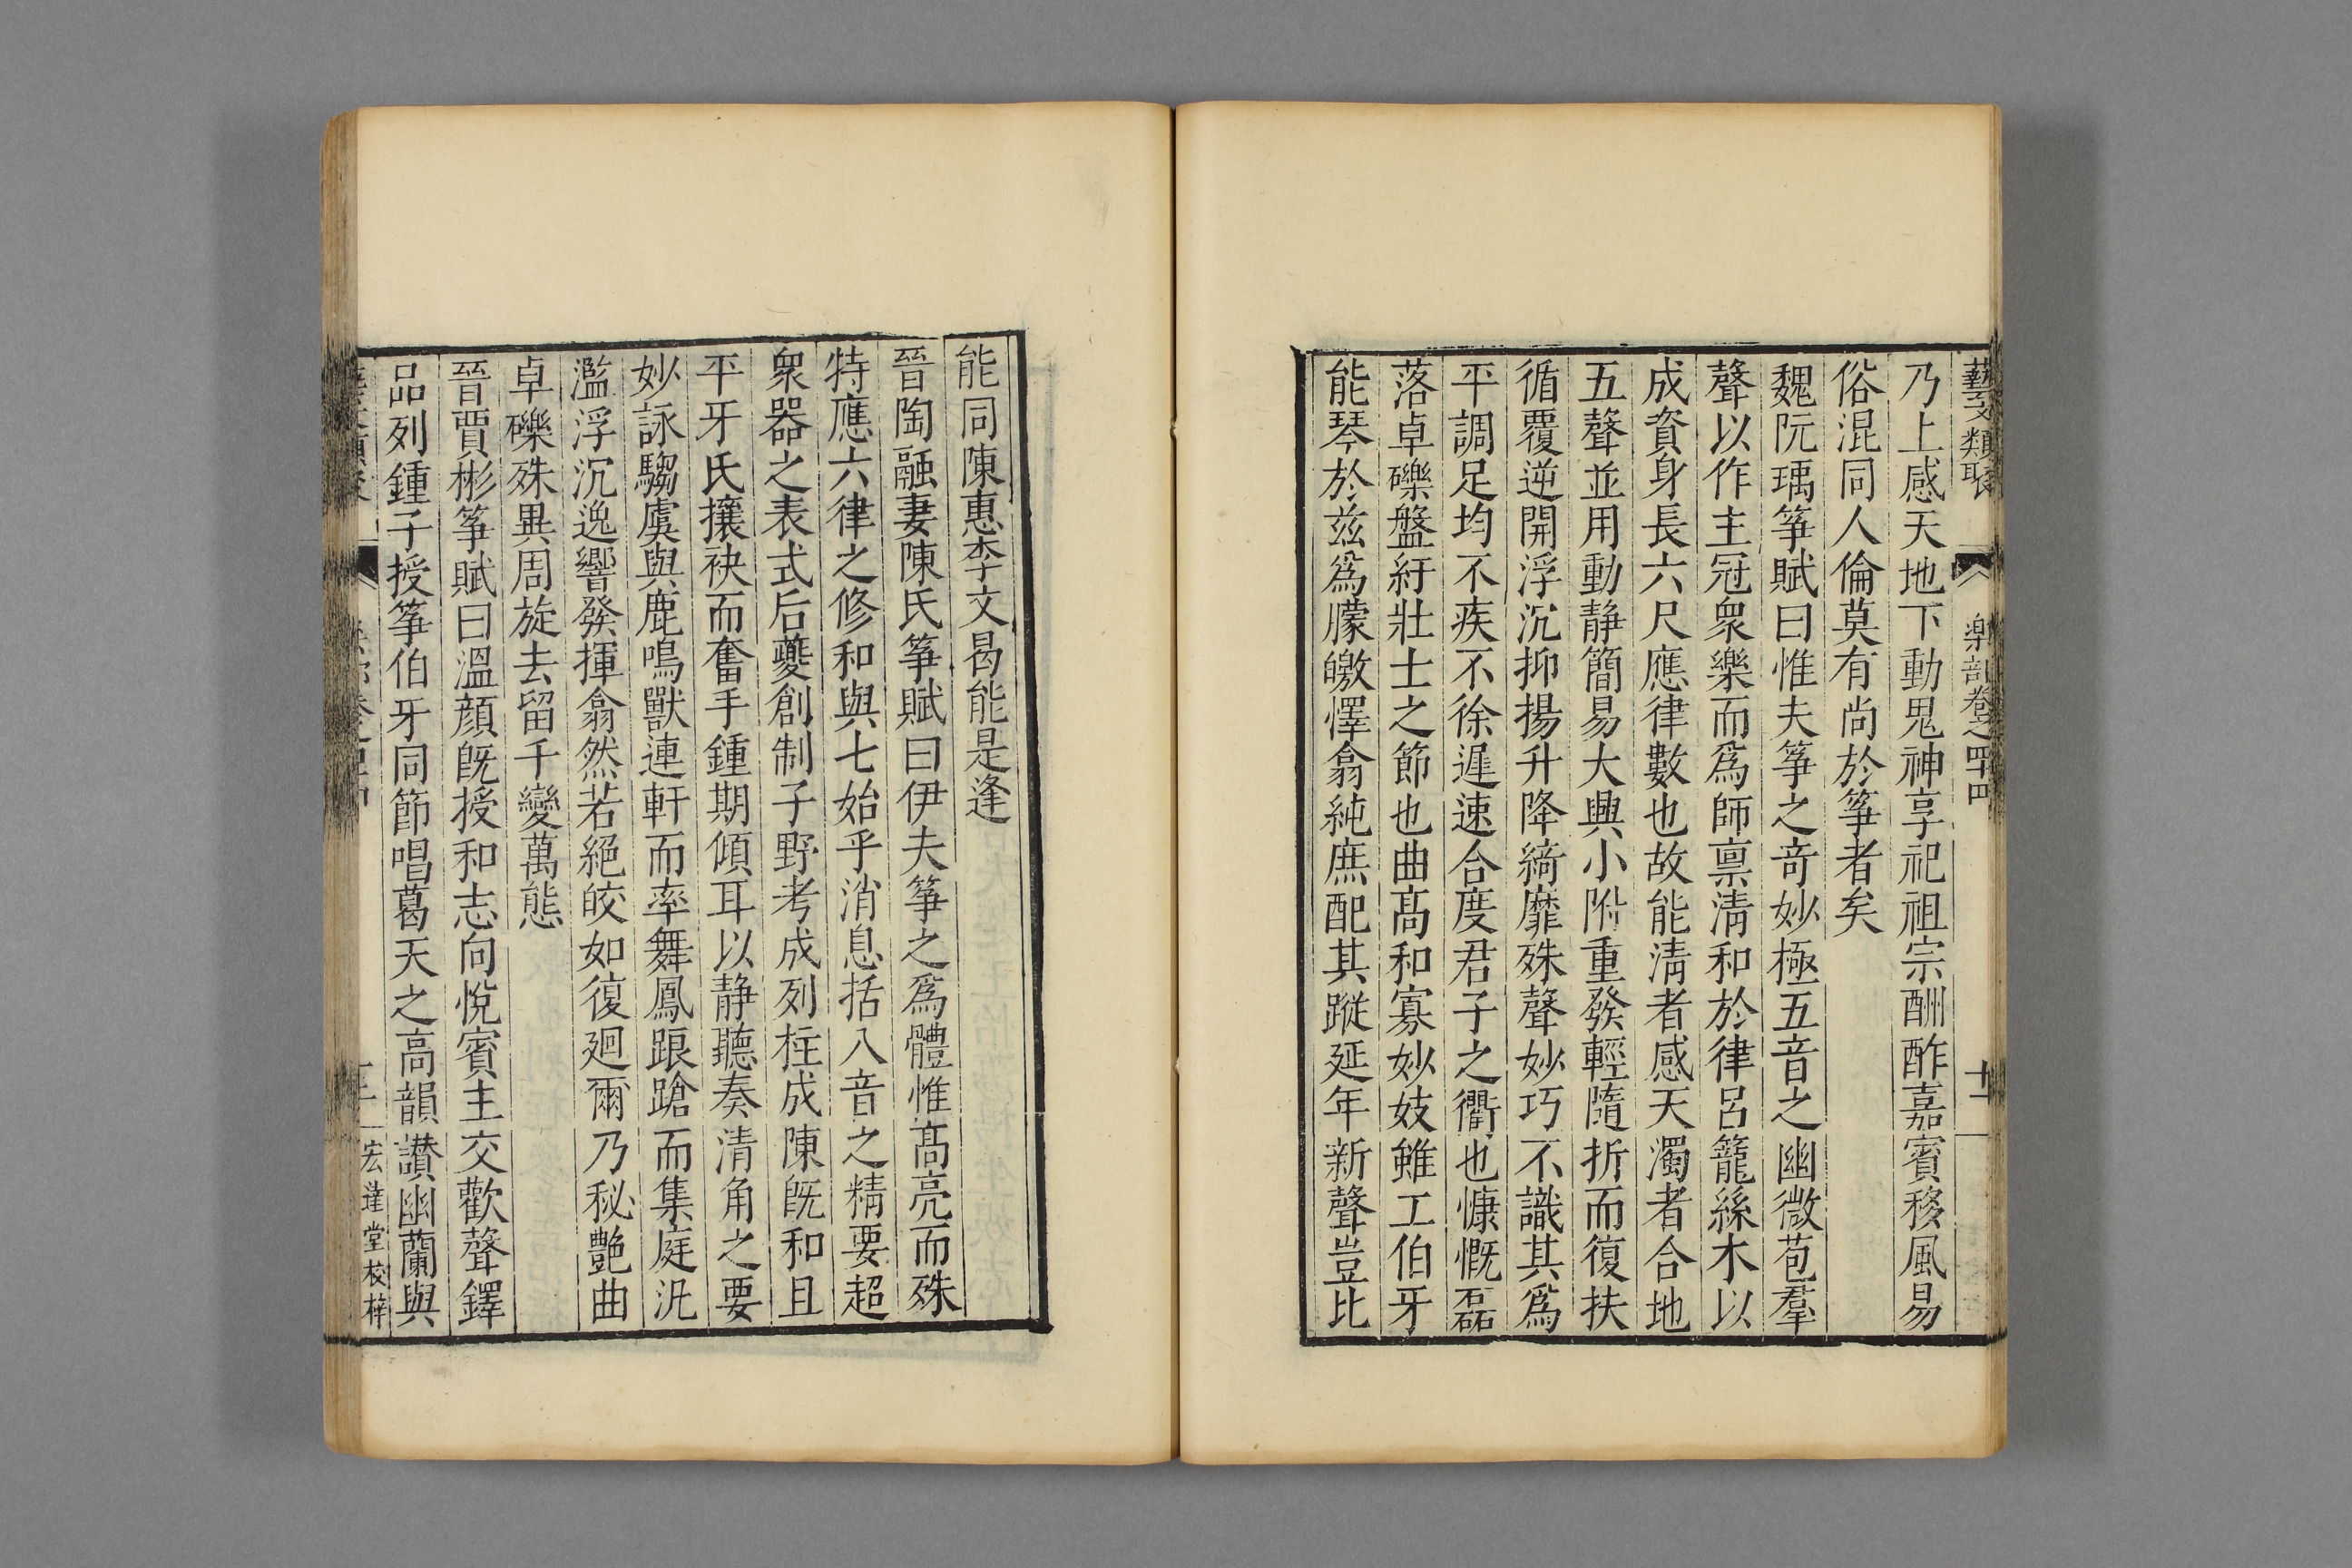 藝文類聚 樂部卷之四十四 十二
乃上感天地下動鬼神享祀祖宗酬酢嘉賓移風易
俗混同人倫莫有尚於筝者矣
魏阮瑀筝賦曰惟夫筝之竒妙極五音之幽微苞羣
聲以作主冠衆樂而爲師禀清和於律呂籠絲木以
成資身長六尺應律數也故能清者感天濁者合地
五聲並用動静簡易大興小附重發輕隨折而復扶
循覆逆開浮沉抑揚升降綺靡殊聲妙巧不識其爲
平調足均不疾不徐遲速合度君子之衢也慷慨磊
落卓礫盤紆壯士之節也曲髙和寡妙妓雖工伯牙
能琴於兹爲朦皦懌翕純庶配其蹤延年新聲豈比
能同陳惠李文曷能是逢
晉陶融妻陳氏筝賦曰伊夫筝之爲體惟髙亮而殊
特應六律之修和與七始乎消息括八音之精要超
衆器之表式后夔創制子野考成列柱成陳旣和且
平牙氏攘袂而奮手鍾期傾耳以静聽奏清角之要
妙詠騶虞與鹿鳴獸連軒而率舞鳳踉蹌而集庭汎
濫浮沉逸響發揮翕然若絕皎如復廻爾乃秘艶曲
卓礫殊異周旋去留千變萬態
晉賈彬筝賦曰溫顔旣授和志向悅賓主交歡聲鐸
品列鍾子授筝伯牙同節唱葛天之高韻讃幽蘭與
宏達堂校梓